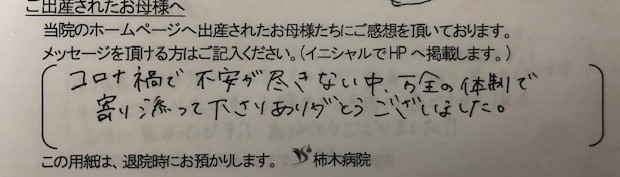 ご出産されたお母様へ
当院のホームページへ出産されたお母様たちにご感想を頂いております。
メッセージを頂ける方はご記入ください。(イニシャルでHPへ掲載します。)
コロナ禍で不安が尽きない中、万全の体制で
寄り添って下さりありがとうございました。
この用紙は、退院時にお預かりします。 柿木病院